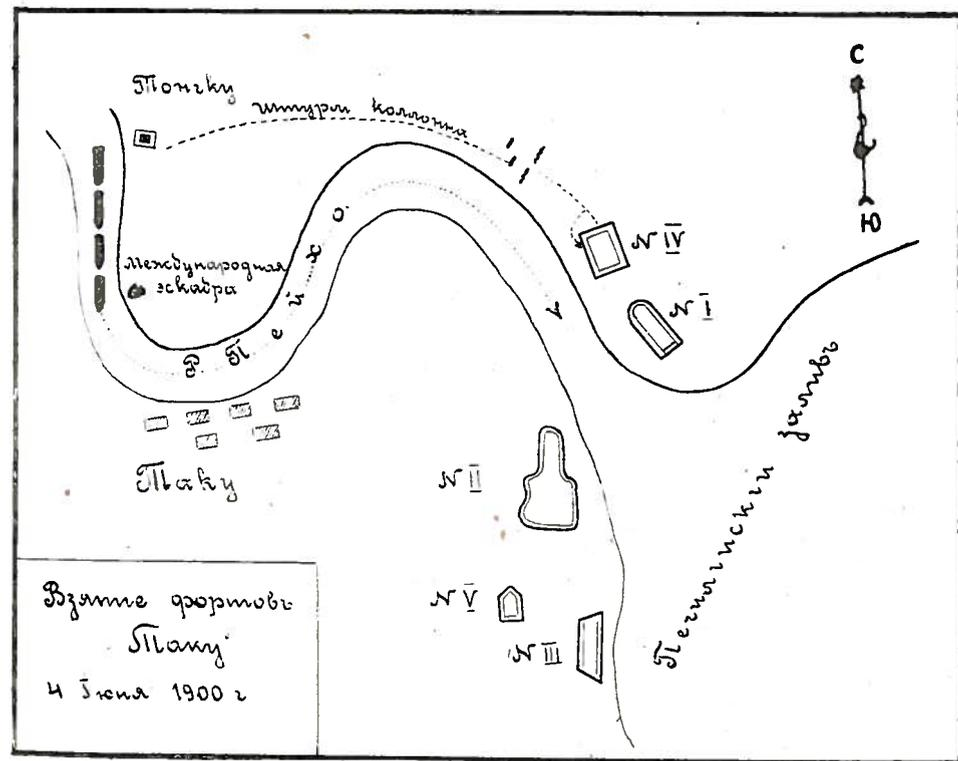 Тонгку
штурм колонна
С
Ю
N IV
N I
международная
эскадра
Р. Пейхо.
Таку
N II
N V
N III
Печилийскій заливъ
Взятие фортовъ
Таку
4 Іюня 1900 г